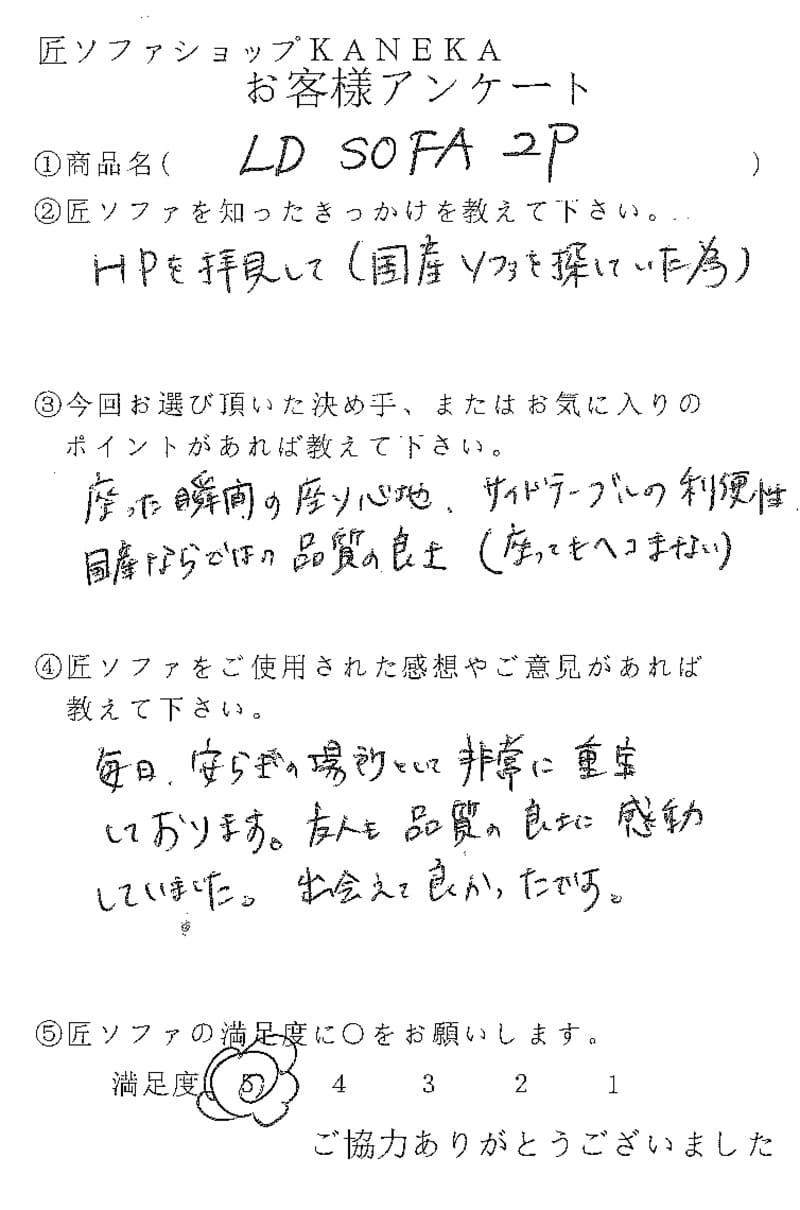 匠ソファショップKANEKA
お客様アンケート
①商品名( LD SOFA 2P )
②匠ソファを知ったきっかけを教えて下さい。
HPを拝見して(国産ソファを探していた為)
③今回お選び頂いた決め手、またはお気に入りの
ポイントがあれば教えて下さい。
座った瞬間の座り心地、サイドテーブルの利便性、
国産ならではの品質の良さ(座ってもヘコまない)
④匠ソファをご使用された感想やご意見があれば
教えて下さい。
毎日、安らぎの場所として非常に重宝
しております。友人も品質の良さに感動
していました。出会えて良かったです。
⑤匠ソファの満足度に○をお願いします。
満足度 5 4 3 2 1
ご協力ありがとうございました